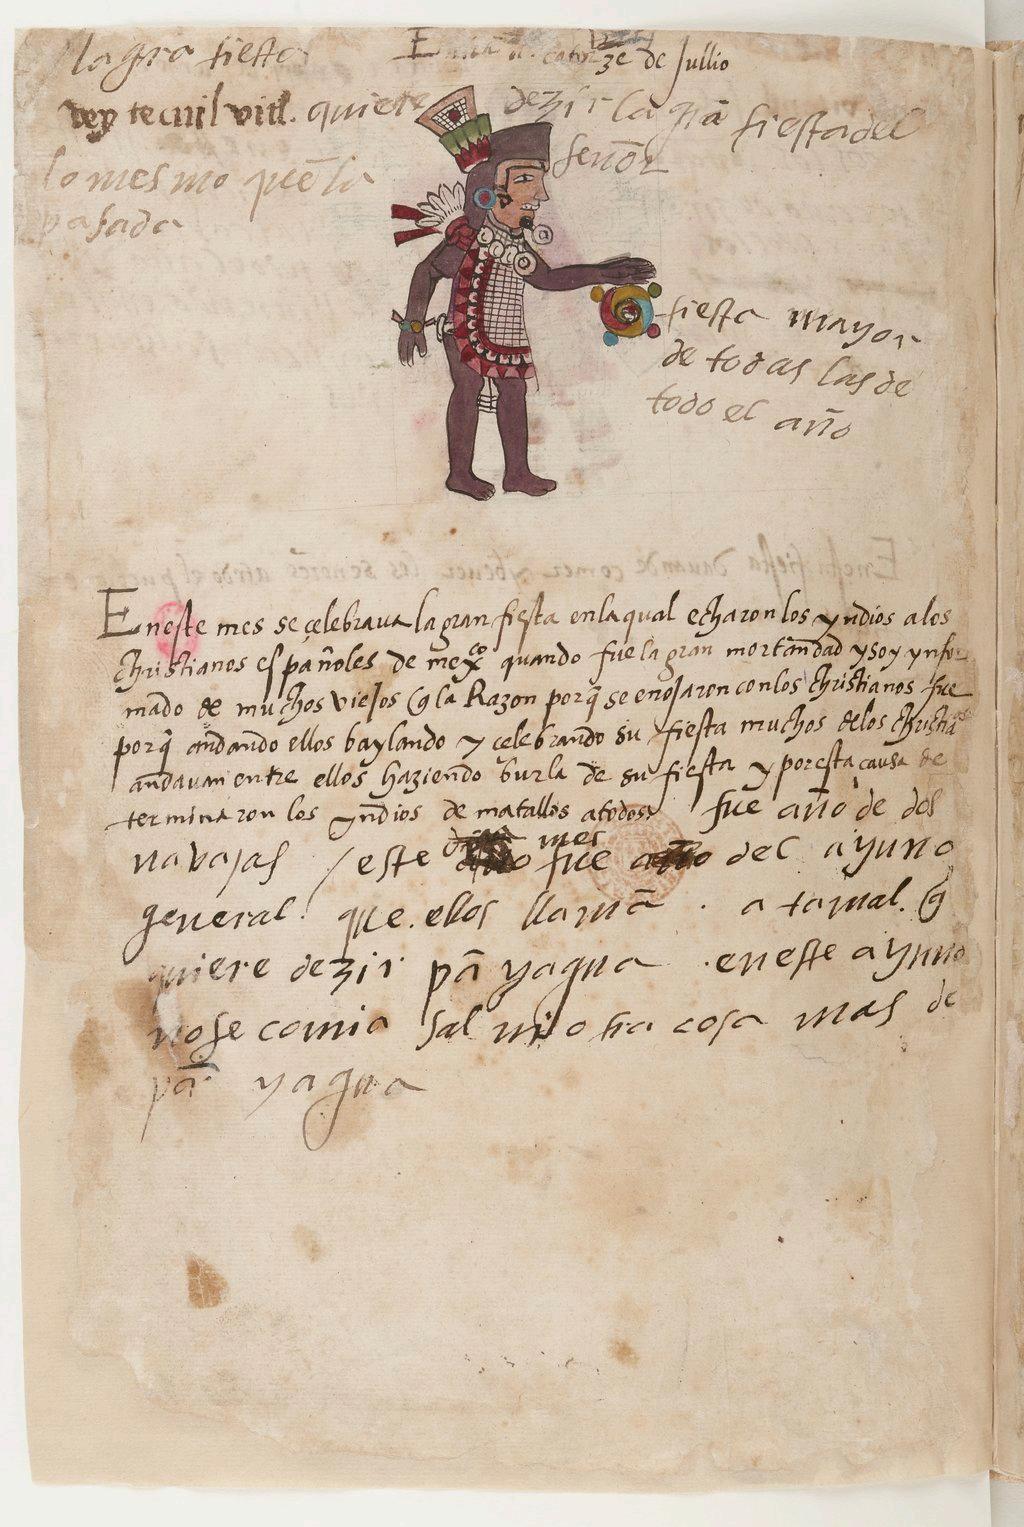 la gra fiesta
En catorze de Jullio
vey tecuil vitl. quiere dezir la gra fiesta del
señor
lo mesmo que la
pasada
fiesta mayor
de todas las de
todo el año
En este mes se çelebraua la gran fiesta en la qual echaron los yndios a los
christianos españoles de mexco quando fue la gran mortandad y soy ynfor
mado de muchos viejos q la Razon porq se enojaron con los christianos fue
porq andando ellos baylando y çelebrando su fiesta muchos de los christia
andauan entre ellos haziendo burla de su fiesta y por esta causa de
terminaron los yndios de matallos a todos fue año de dos
navajas / este mes fue del ayuno
general. que. ellos llamā . atamal. q
quiere dezir pā y agua . en este ayuno
no se comia sal ni otra cosa mas de
pā y agua